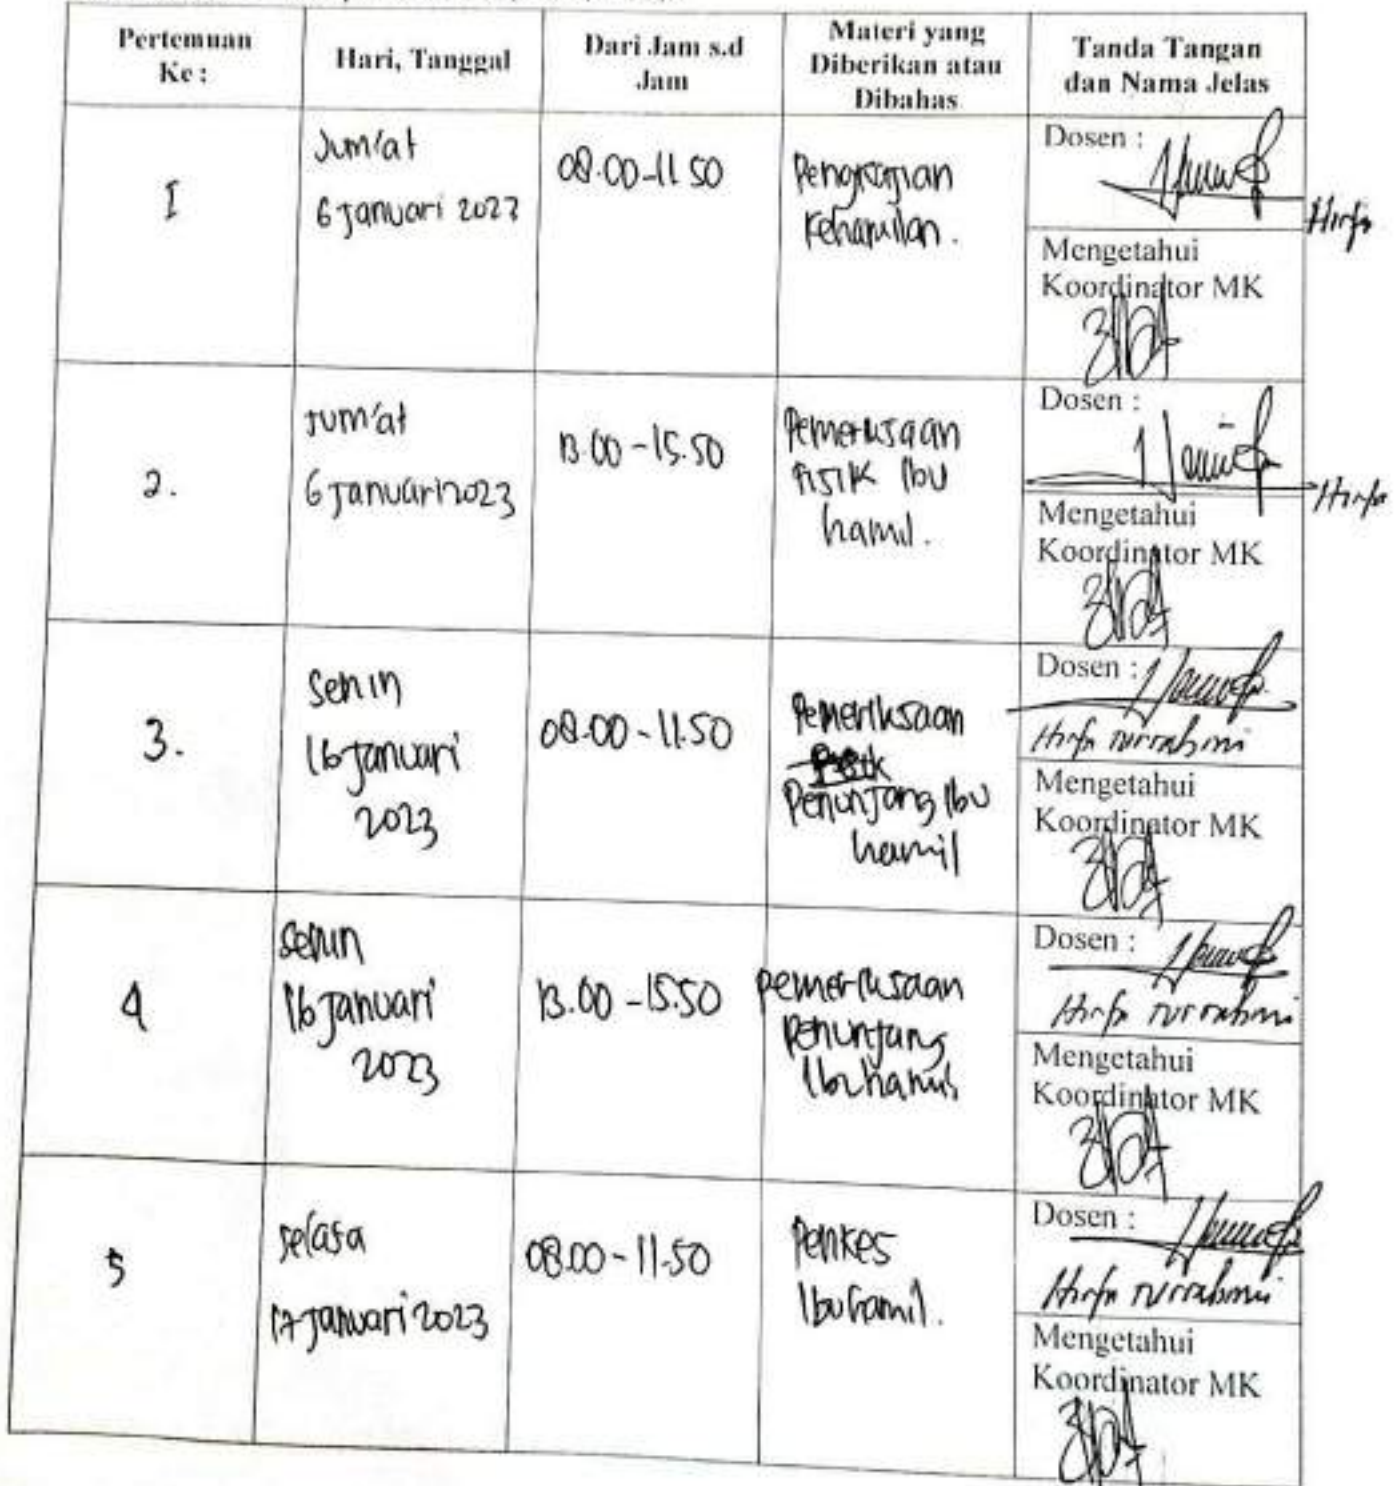 Pertemuan
Ke :
Hari, Tanggal
Dari Jam s.d
Jam
Materi yang
Diberikan atau
Dibahas
Tanda Tangan
dan Nama Jelas
1
Jum'at
6 Januari 2023
08.00-11.50
Pengkajian
Kehamilan.
Dosen :
Hirfa
Mengetahui
Koordinator MK
2.
Jum'at
6 Januari 2023
13.00-15.50
Pemeriksaan
Fisik Ibu
hamil.
Dosen :
Hirfa
Mengetahui
Koordinator MK
3.
Senin
16 Januari
2023
08.00-11.50
Pemeriksaan
Penunjang Ibu
hamil
Dosen :
Hirfa Turrahmi
Mengetahui
Koordinator MK
4
Senin
16 Januari
2023
13.00-15.50
Pemeriksaan
Penunjang
Ibu hamil
Dosen :
Hirfa Turrahmi
Mengetahui
Koordinator MK
5
Selasa
17 Januari 2023
08.00-11.50
Penkes
Ibu hamil.
Dosen :
Hirfa Turrahmi
Mengetahui
Koordinator MK